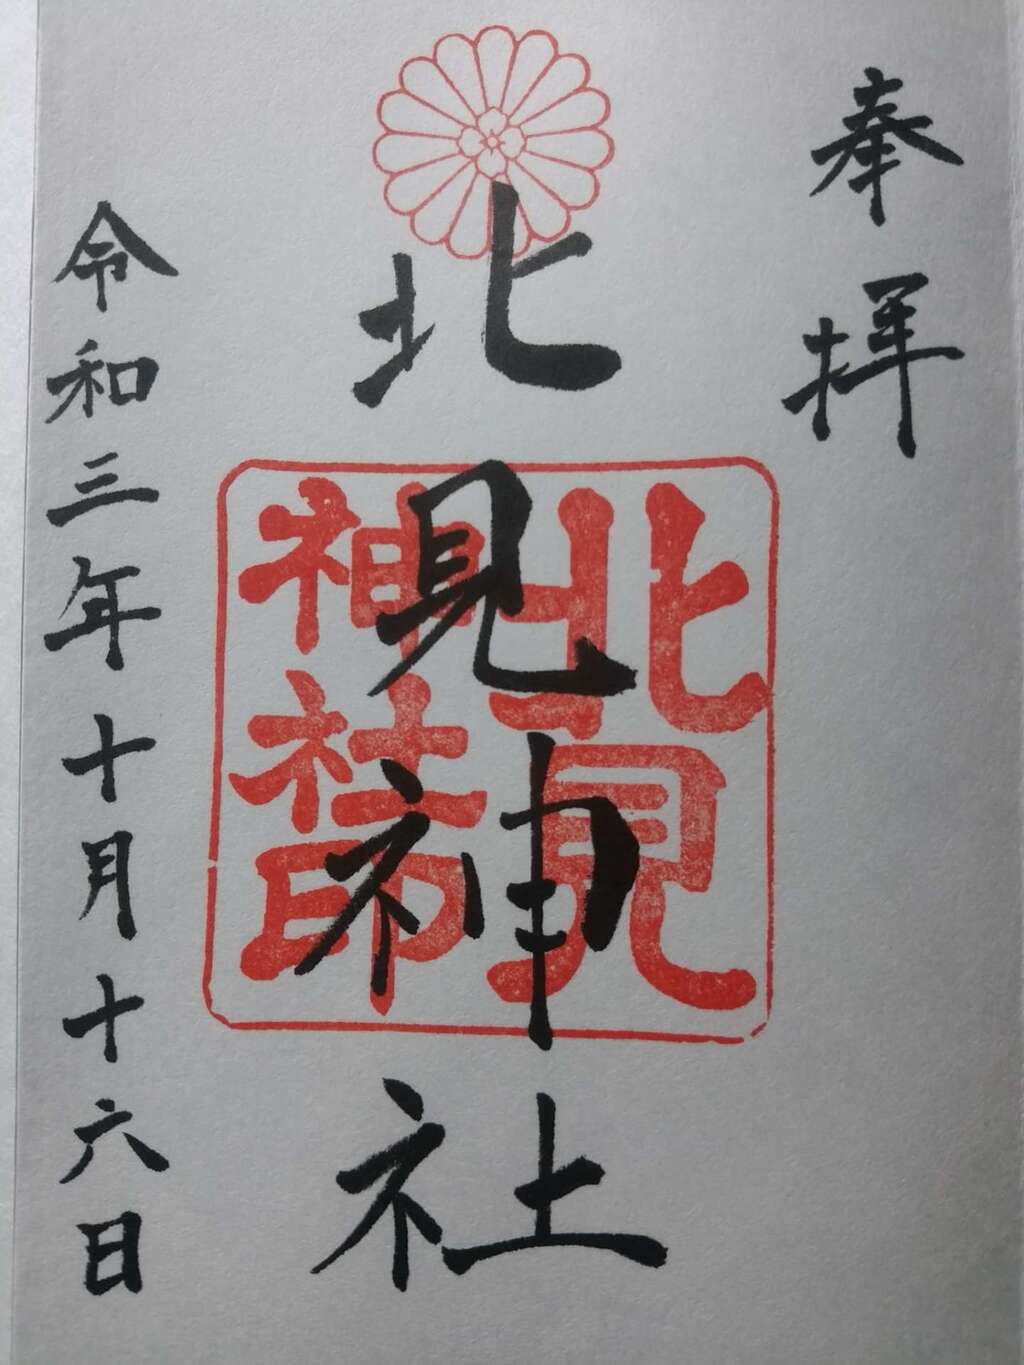 奉拝
北見神社
北見神社印
令和三年十月十六日